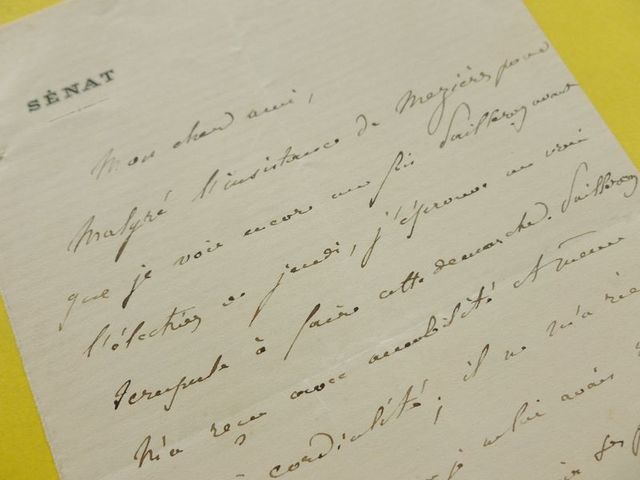 SÉNAT
Mon cher ami,
Malgré l'insistance de Mezières pour
que je voie encore une fois Pailleron avant
l'élection de jeudi, j'éprouve un vrai
scrupule à faire cette démarche. Pailleron
m'a reçu avec amabilité et même
cordialité; il ne m'a
je lui avais